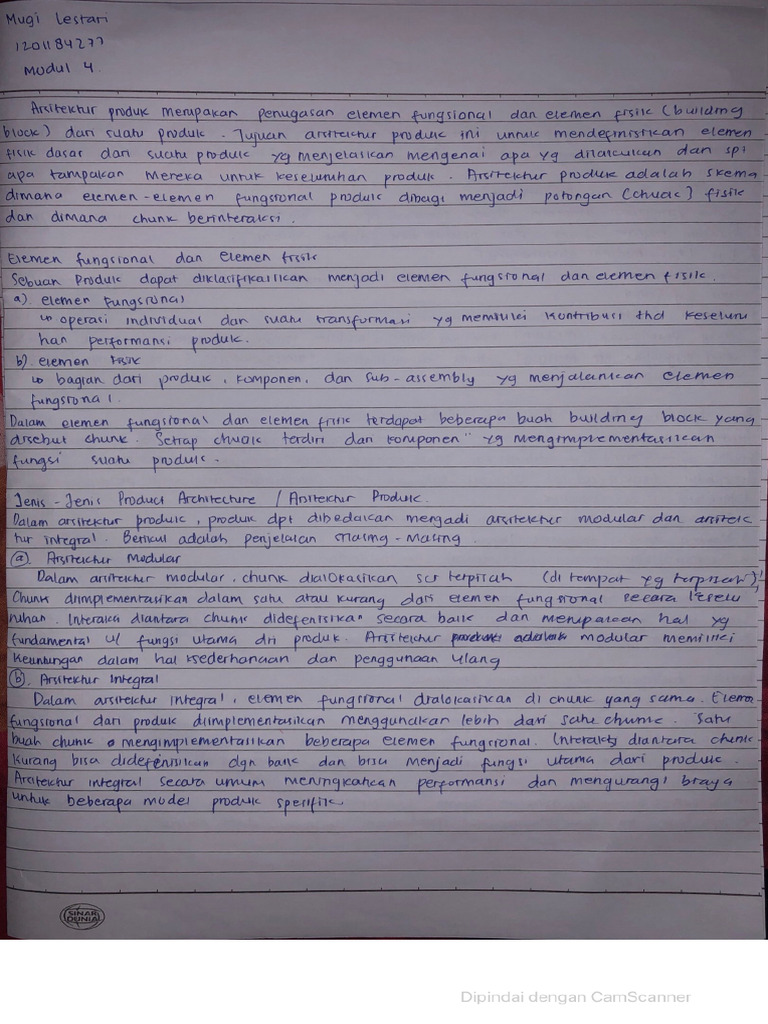 Mugi Lestari
1201184277
Modul 4.
Arsitektur produk merupakan penugasan elemen fungsional dan elemen fisik (building
block) dari suatu produk. Tujuan arsitektur produk ini untuk mendefinisikan elemen
fisik dasar dari suatu produk yg menjelaskan mengenai apa yg dilakukan dan spt
apa tampakan mereka untuk keseluruhan produk. Arsitektur produk adalah skema
dimana elemen-elemen fungsional produk dibagi menjadi potongan (chuak) fisik
dan dimana chunk berinteraksi.
Elemen fungsional dan Elemen fisik
Sebuah Produk dapat diklasifikasikan menjadi elemen fungsional dan elemen fisik.
a). elemen fungsional
↳ operasi individual dari suatu transformasi yg memiliki kontribusi thd keseluru
han performansi produk.
b). elemen fisik
↳ bagian dari produk, komponen, dan sub-assembly yg menjalankan elemen
fungsional.
Dalam elemen fungsional dan elemen fisik terdapat beberapa buah building block yang
disebut chunk. Setiap chuak terdiri dari komponen" yg mengimplementasikan
fungsi suatu produk.
Jenis-Jenis Product Architecture / Arsitektur Produk.
Dalam arsitektur produk, produk dpt dibedakan mengadi arsitektur modular dan arsitek
tur integral. Berikut adalah penjelasan masing-masing.
(a). Arsitektur Modular
Dalam arsitektur modular, chunk dialokasikan scr terpisah (di tempat yg terpisah).
Chunk diimplementasikan dalam satu atau kurang dari elemen fungsional secara keselu
ruhan. Interaksi diantara chunk didefenisikan secara baik dan merupakan hal yg
fundamental u/ fungsi utama dri produk. Arsitektur modular memiliki
keuntungan dalam hal ksederhanaan dan penggunaan ulang
(b). Arsitektur Integral
Dalam arsitektur integral, elemen fungsional dialokasikan di chunk yang sama. Elemen
fungsional dari produk diimplementasikan menggunakan lebih dari satu chunk. Satu
buah chunk mengimplementasikan beberapa elemen fungsional. Interaksi diantara chunk
kurang bisa didefenisikan dgn baik dan bisa menjadi fungsi utama dari produk.
Arsitektur integral secara umum meningkatkan performansi dan mengurangi biaya
untuk beberapa model produk spesifik.
SINAR
DUNIA
Dipindai dengan CamScanner